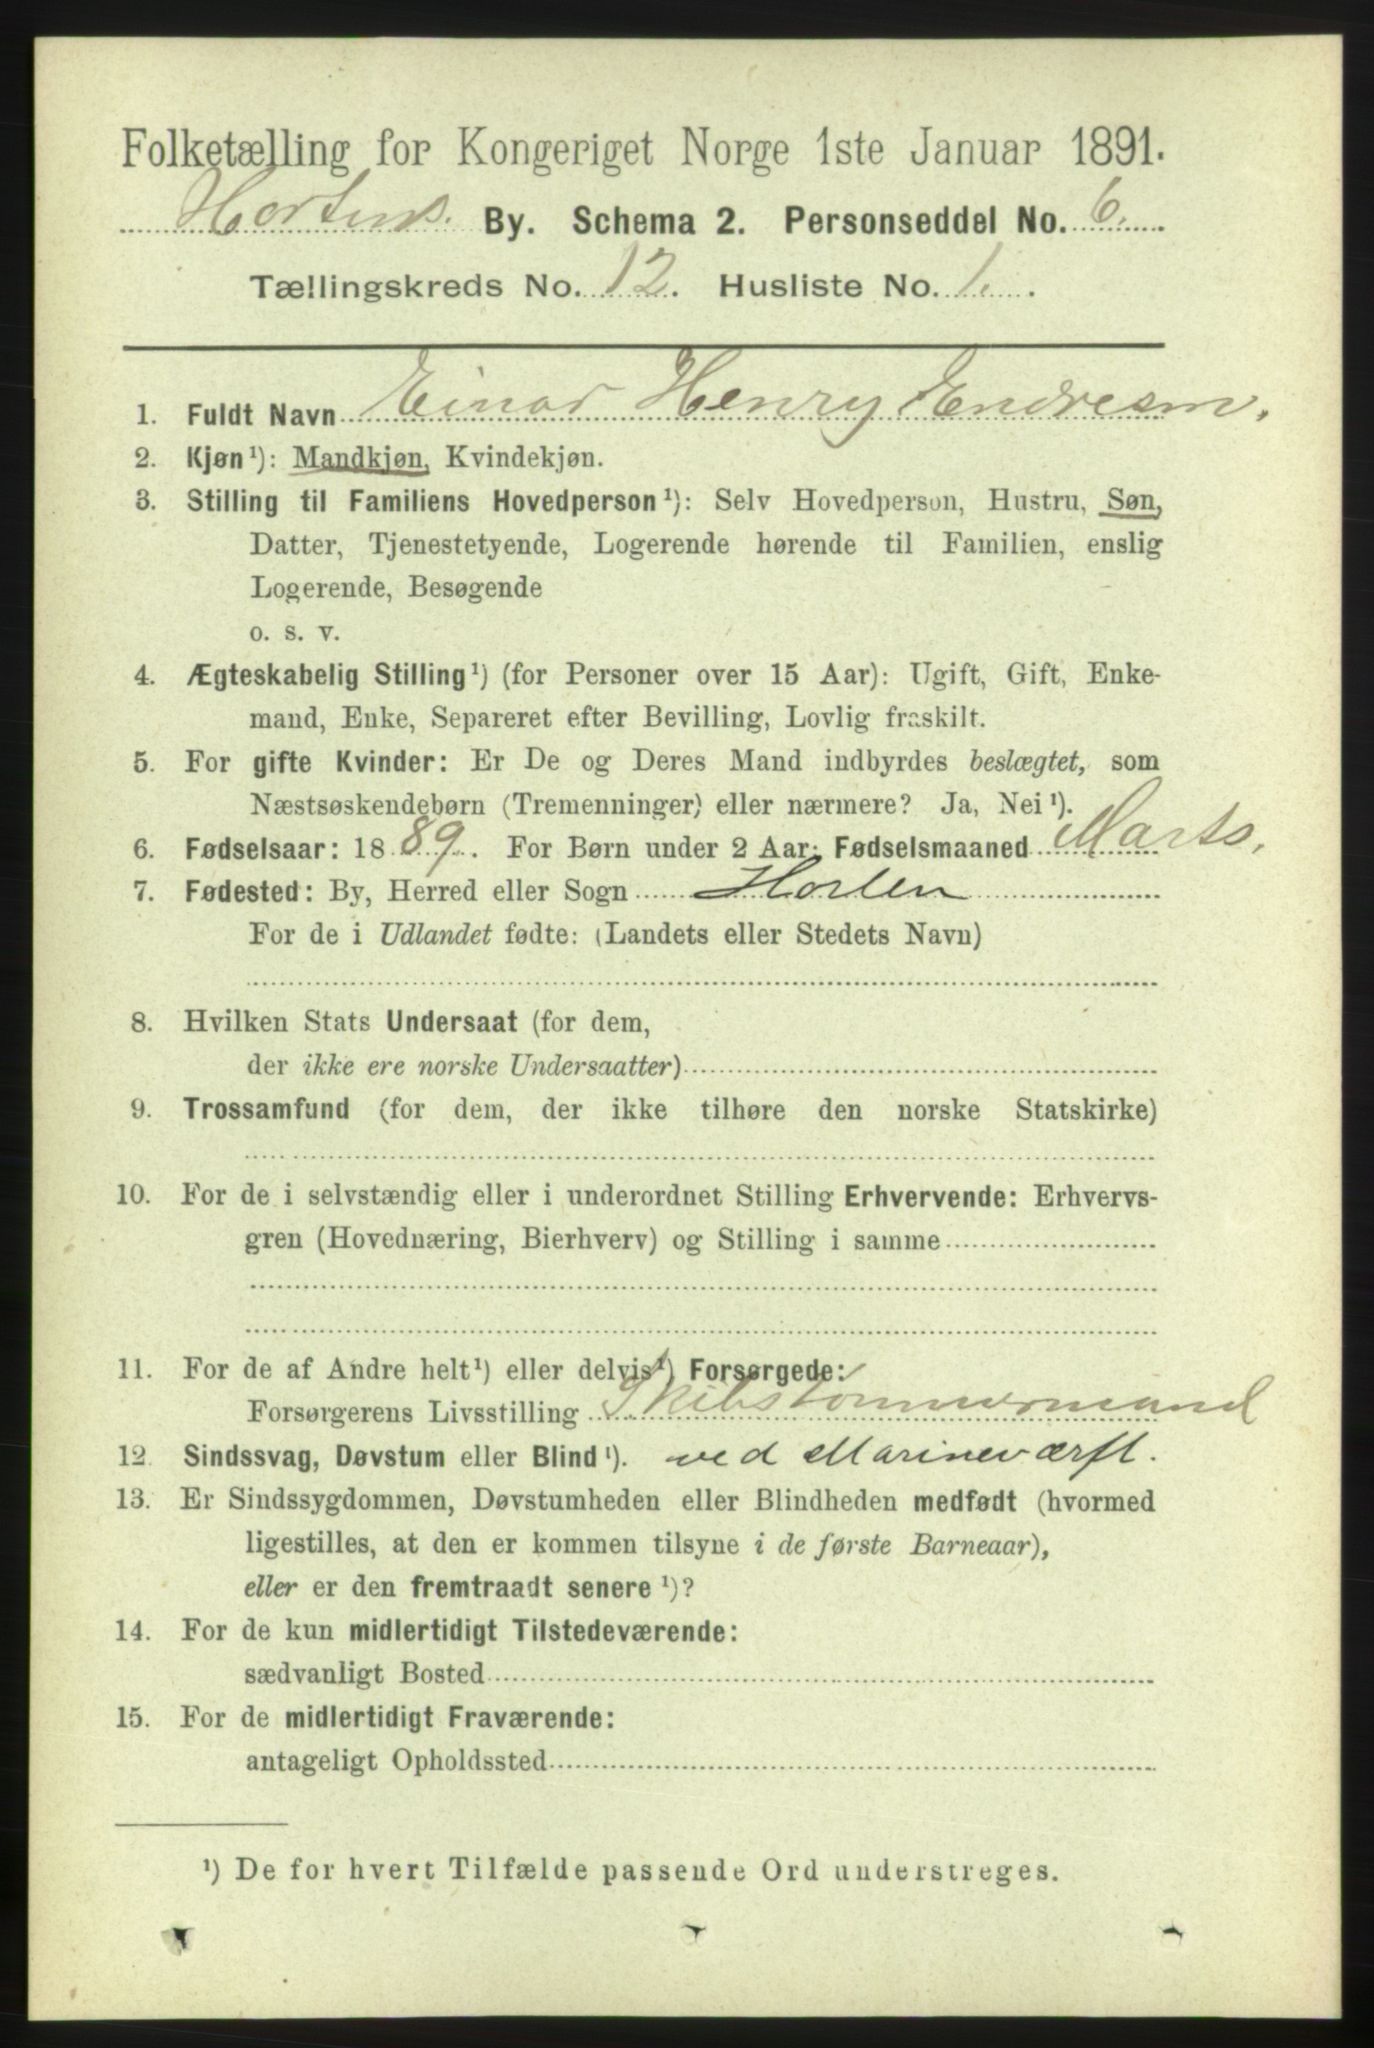 Folketælling for Kongeriget Norge 1ste Januar 1891.
Hortens By. Schema 2. Personseddel No. 6.
Tællingskreds No. 12. Husliste No. 1.
1. Fuldt Navn Einar Henry Endresen.
2. Kjøn¹): Mandkjøn, Kvindekjøn.
3. Stilling til Familiens Hovedperson¹): Selv Hovedperson, Hustru, Søn,
Datter, Tjenestetyende, Logerende hørende til Familien, enslig
Logerende, Besøgende
o. s. v.
4. Ægteskabelig Stilling¹) (for Personer over 15 Aar): Ugift, Gift, Enke-
mand, Enke, Separeret efter Bevilling, Lovlig fraskilt.
5. For gifte Kvinder: Er De og Deres Mand indbyrdes beslægtet, som
Næstsøskendebørn (Tremenninger) eller nærmere? Ja, Nei¹).
6. Fødselsaar: 1889. For Børn under 2 Aar: Fødselsmaaned Marts.
7. Fødested: By, Herred eller Sogn Horten
For de i Udlandet fødte: (Landets eller Stedets Navn)
8. Hvilken Stats Undersaat (for dem,
der ikke ere norske Undersaatter)
9. Trossamfund (for dem, der ikke tilhøre den norske Statskirke)
10. For de i selvstændig eller i underordnet Stilling Erhvervende: Erhvervs-
gren (Hovednæring, Bierhverv) og Stilling i samme
11. For de af Andre helt¹) eller delvis¹) Forsørgede:
Forsørgerens Livsstilling Skibstømmermand
12. Sindssvag, Døvstum eller Blind¹). ved Marineværft.
13. Er Sindssygdommen, Døvstumheden eller Blindheden medfødt (hvormed
ligestilles, at den er kommen tilsyne i de første Barneaar),
eller er den fremtraadt senere¹)?
14. For de kun midlertidigt Tilstedeværende:
sædvanligt Bosted
15. For de midlertidigt Fraværende:
antageligt Opholdssted
¹) De for hvert Tilfælde passende Ord understreges.